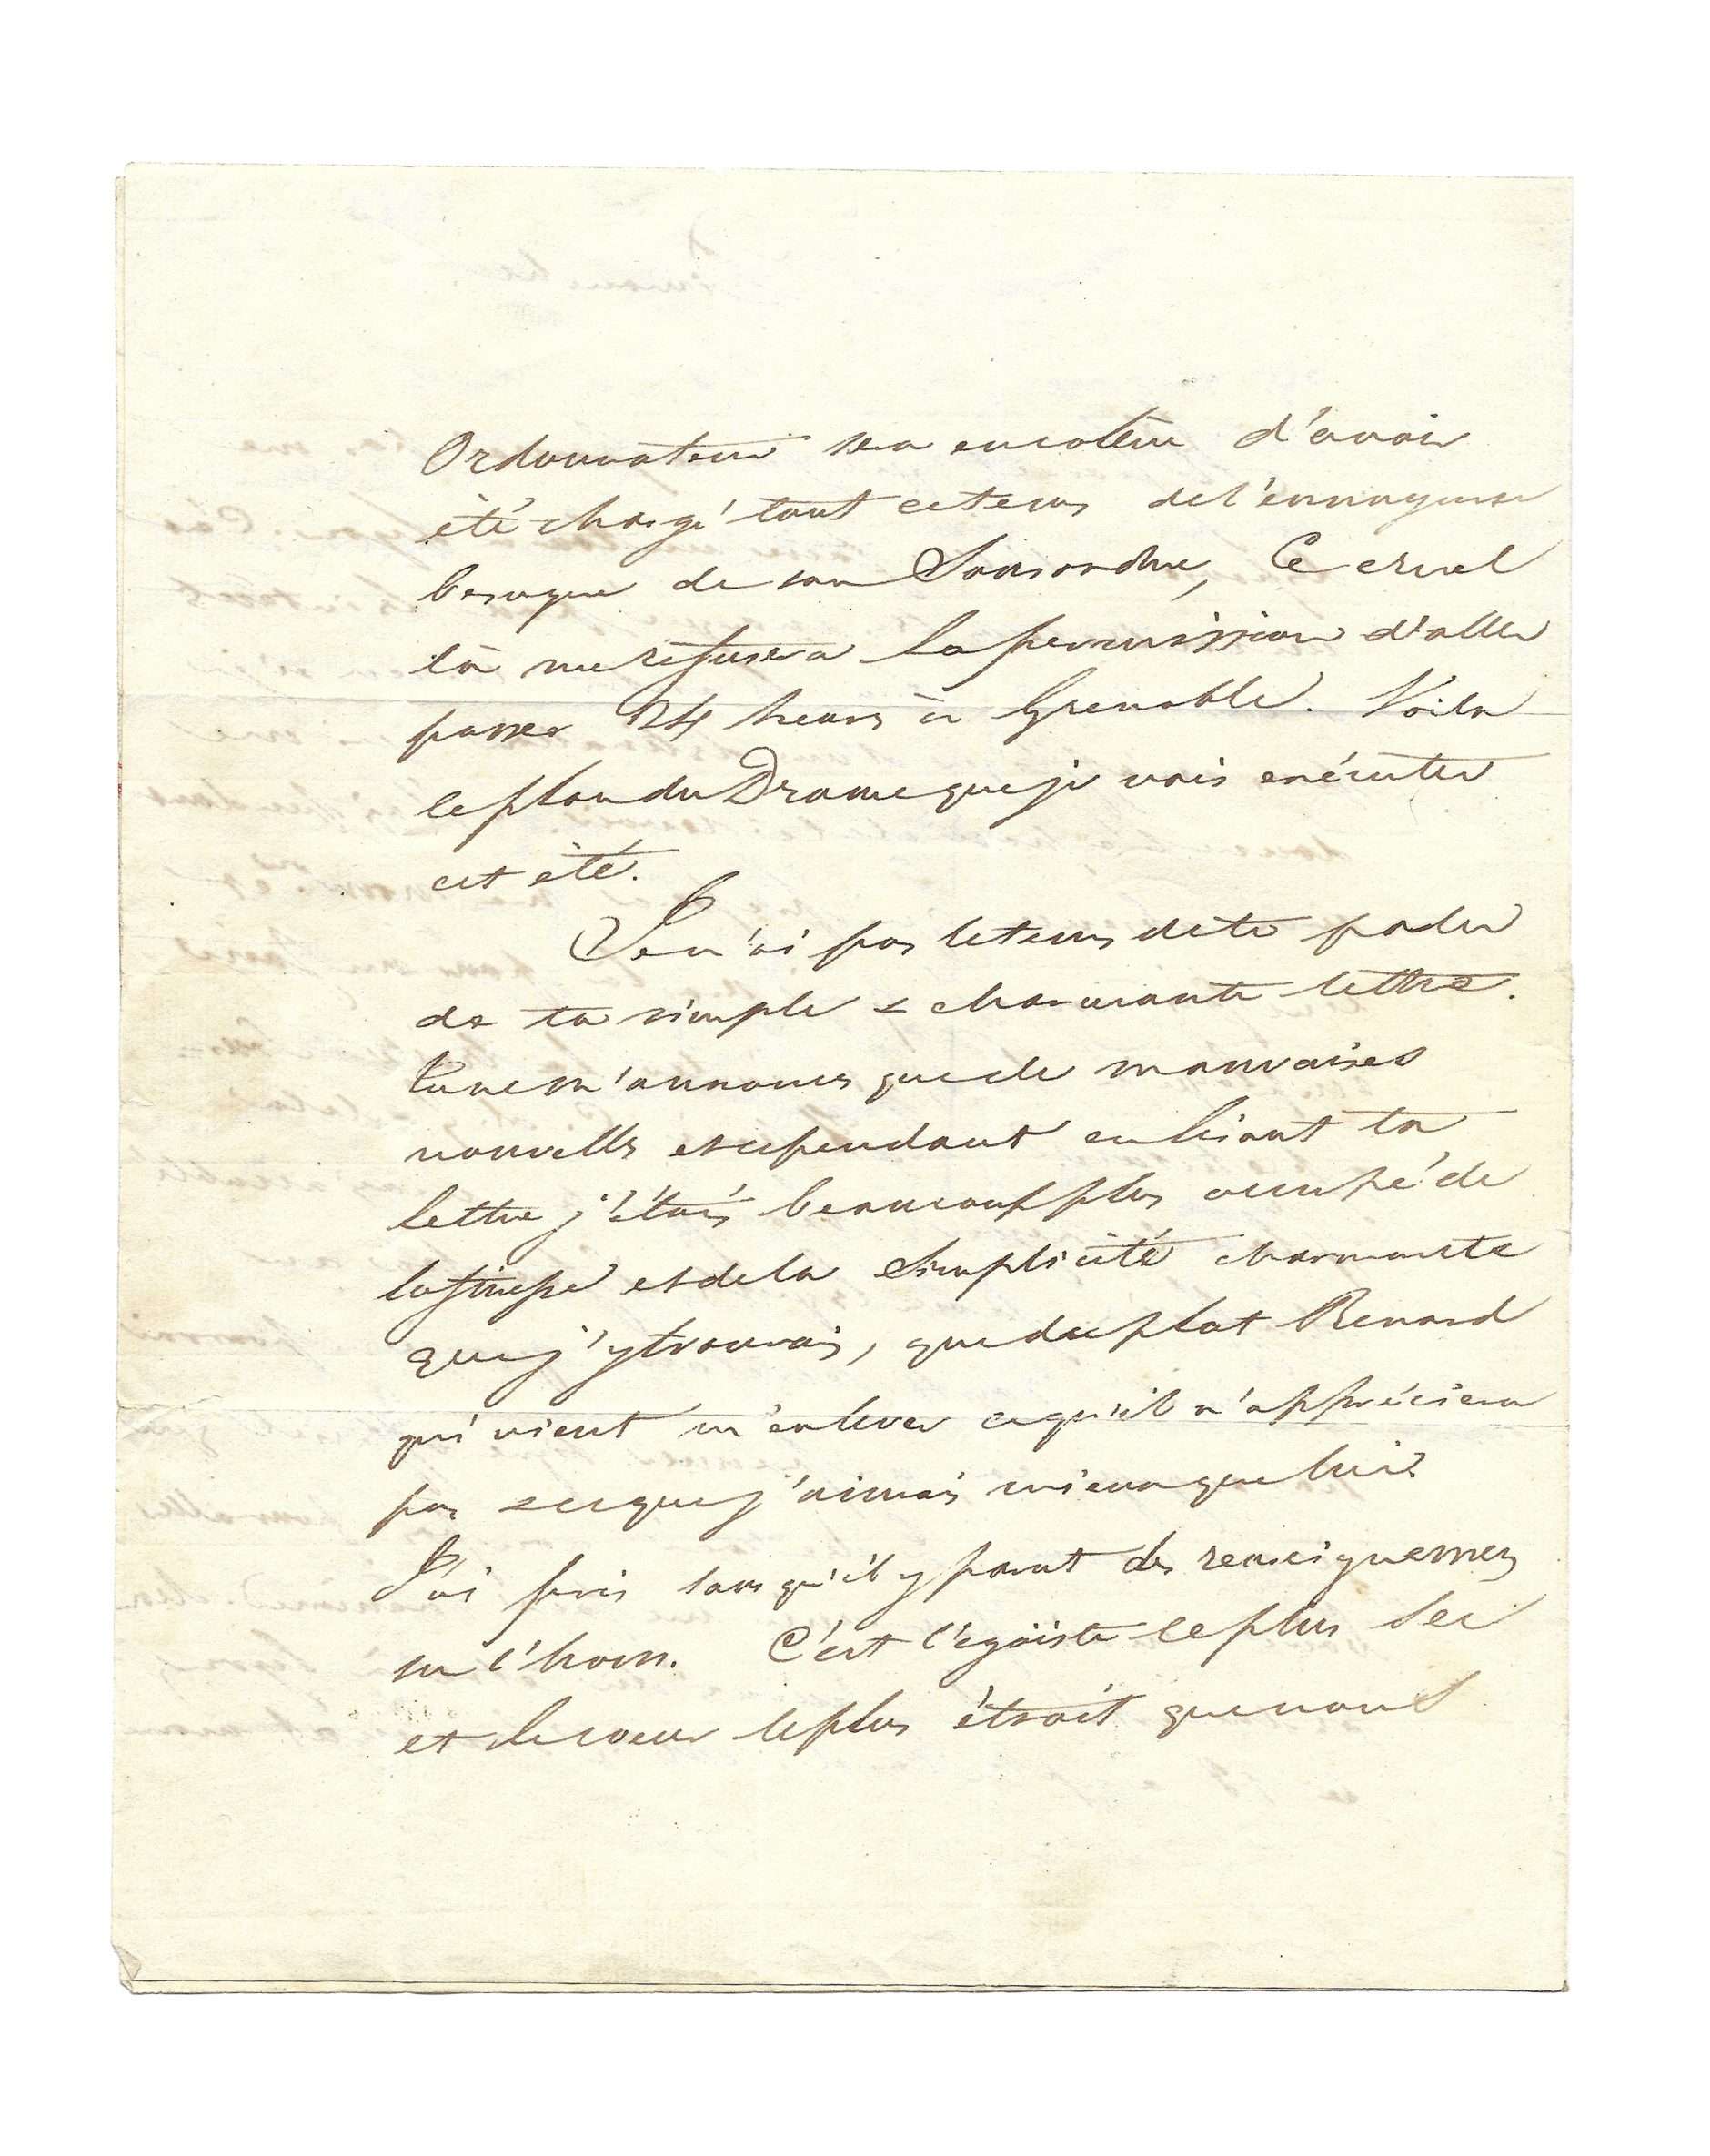 Ordonnateur sera en colère d'avoir
été chargé tout ce tems de l'ennuyeuse
besogne de son Sousordre, Ce cruel
là me refusera la permission d'aller
passer 24 heures à Grenoble. Voila
le plan du Drame que je vais exécuter
cet été.
Je n'ai pas le tems de te parler
de ta simple & charmante lettre.
Tu ne m'annonces que de mauvaises
nouvelles et cependant en lisant ta
lettre j'étais beaucoup plus occupé de
la finesse et de la Simplicité charmante
que j'y trouvais, que du plat Renard
qui vient m'enlever ce qu'il n'appréciera
pas & ce que j'aimais mieux que lui.
J'ai pris sans qu'il y parut des renseignemens
sur l'hom. C'est l'égoïste le plus Sec
et le coeur le plus étroit que nous